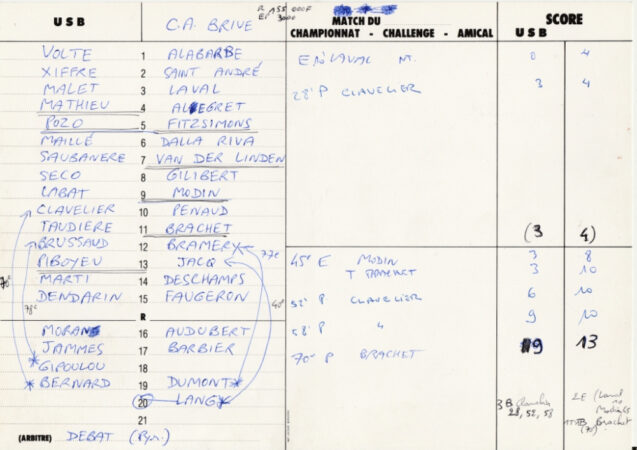 R 155 000F
E 3000
U S B C.A. BRIVE
MATCH DU
CHAMPIONNAT - CHALLENGE - AMICAL
SCORE
U S B
VOLTE 1 ALABARBE
XIFFRE 2 SAINT ANDRÉ
MALET 3 LAVAL
MATHIEU 4 ALLEGRET
POZO 5 FITZSIMONS
MAILLÉ 6 DALLA RIVA
SAUBANERE 7 VAN DER LINDEN
SECO 8 GILIBERT
LABAT 9 MODIN
CLAVELIER 10 PENAUD
TAUDIERE 11 BRACHET
BRUSSAUD 12 BRAMERY
PIBOYEU 13 JACQ
MARTI 14 DESCHAMPS
DENDARIN 15 FAUGERON
R
MORAN 16 AUDUBERT
JAMMES 17 BARBIER
GIPOULOU 18
BERNARD 19 DUMONT
20 LANGY
21
(ARBITRE) DEBAT (Pyr.)
70e
78e
77e
40e
E LAVAL NT. 0 4
28' P CLAVELIER 3 4
(3 4)
45e E MODIN 3 8
T BRACHET 3 10
52' P CLAVELIER 6 10
58' P " 9 10
70e P BRACHET 9 13
3B Clavelier
28, 52, 58
2E (Laval
Modin 45
Brachet